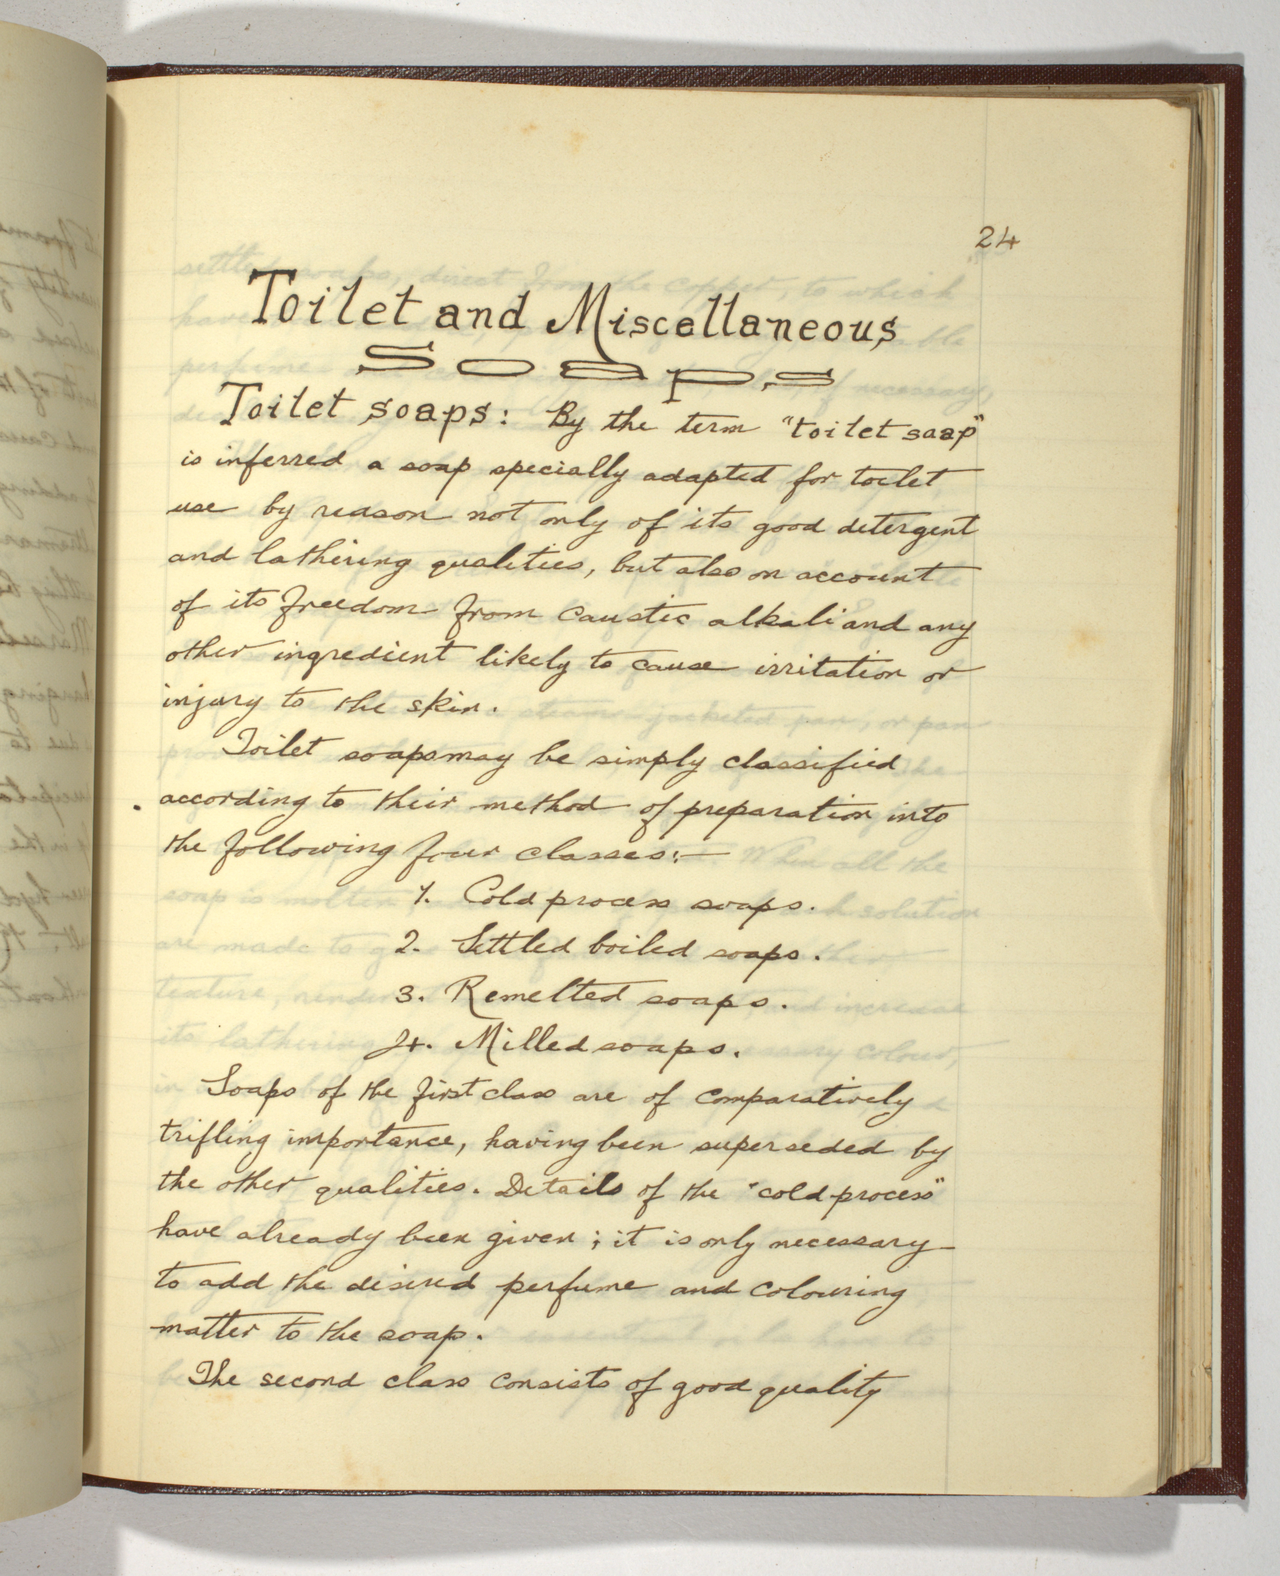 24
Toilet and Miscellaneous
Soaps
Toilet soaps: By the term "toilet soap"
is inferred a soap specially adapted for toilet
use by reason not only of its good detergent
and lathering qualities, but also on account
of its freedom from caustic alkali and any
other ingredient likely to cause irritation or
injury to the skin.
Toilet soaps may be simply classified
according to their method of preparation into
the following four classes:—
1. Cold process soaps.
2. Settled boiled soaps.
3. Remelted soaps.
4. Milled soaps.
Soaps of the first class are of comparatively
trifling importance, having been superseded by
the other qualities. Details of the "cold process"
have already been given; it is only necessary
to add the desired perfume and colouring
matter to the soap.
The second class consists of good quality